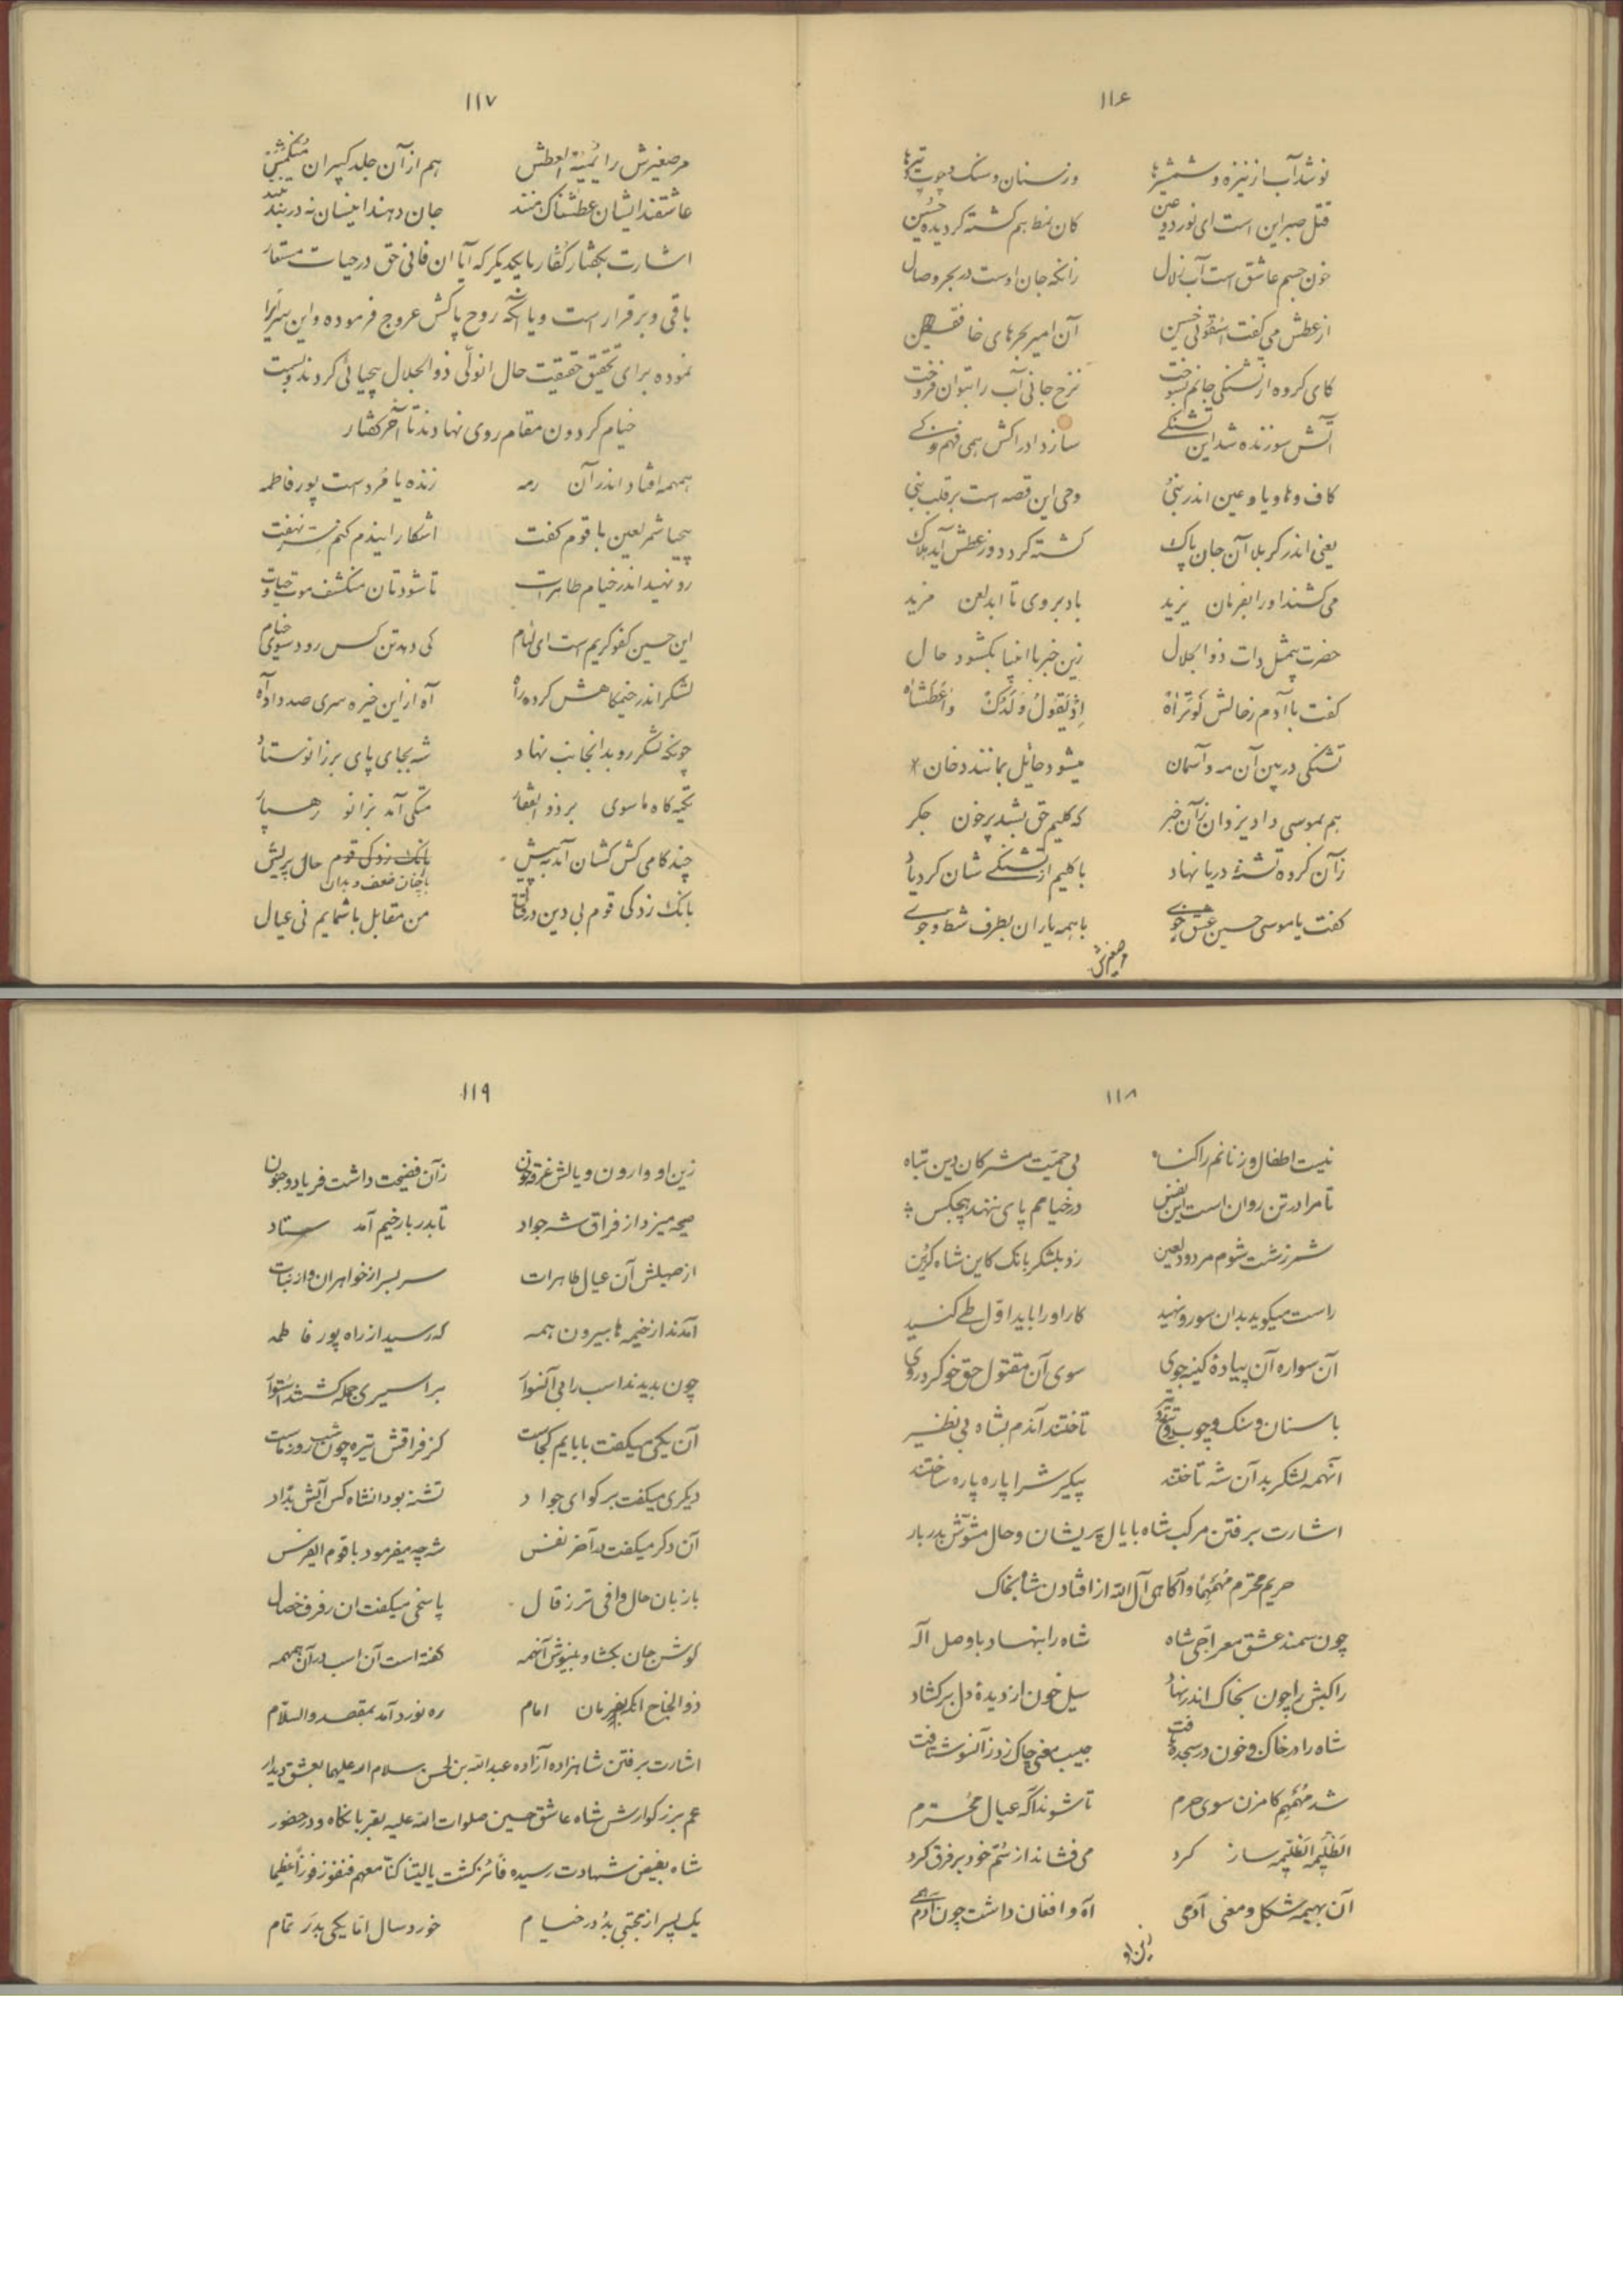 ۱۱۶
نوشد آب از نیزه و شمشیرها وز سنان و سنک و چوب و تیرها
قتل صبر این است ای نور دو عین کان نمط هم کشته کردیده حسین
خون جسم عاشق است آب زلال زانکه جان اوست در بحر وصال
از عطش می کفت اسقونی حسین آن امیر بحرهای خافقین
کای کروه از تشنکی جانم بسوخت نرخ جانی آب را بتوان فروخت
آتش سوزنده شد این تشنکی سازد ادراکش همی فهم
کاف و ها و یا و عین اندر نبی وحی این قصه است بر قلب نبی
یعنی اندر کربلا آن جان پاک کشته کردد وز عطش آید هلاک
می کشند او را بفرمان یزید باد بر وی تا ابد لعن مزید
حضرت بیمثل ذات ذوالجلال زین خبر با انبیا بکشود حال
کفت با آدم ز حالش لو تراه اذ یقول ولدک واعطشاه
تشنکی در بین آن مه و آسمان میشود حائل بمانند دخان
هم بموسی داد یزدان زآن خبر که کلیم حق بشد پرخون جکر
زآن کروه تشنهٔ دریا نهاد با کلیم از تشنکی شان کرد یاد
کفت یا موسی حسین عشق جوی با همه یاران بطرف شط و جوی
مر صغیرش
۱۱۷
مر صغیرش را یمیته العطش هم از آن جلد کبیران منکمش
عاشقند ایشان عطشناک منند جان دهند اینسان نه در بند
اشارت بکفتار کفار با یکدیکر که آیا ان فانی حق در حیات مستعار
باقی و برقرار است و یا آنکه روح پاکش عروج فرموده و این سر را
نموده برای تحقیق حقیقت حال انولی ذوالجلال بیحیائی کردند و بسمت
خیام کردون مقام روی نهادند تا آخر کفتار
همهمه افتاد اندر آن رمه زنده یا مرد است پور فاطمه
بیحیا شمر لعین با قوم کفت اشکارا ایندم کنم سر نهفت
رو نهید اندر خیام طاهرات تا شودتان منکشف موت و حیات
این حسین کفو کریم است ای لئام کی دهد تن کس رود سوی خیام
لشکر اندر خیمکاهش کرده راه آه از این خیره سری صد داد آه
چونکه لشکر رو بدانجانب نهاد شه بجای پای بر زانو ستاد
تکیه کاه ماسوی بر ذوالفقار متکی آمد بزانو رهسپار
چند کامی کش کشان آمد به پیش با چنان ضعف و بدان حال پریش
بانک زد کی قوم بی دین در قتال من مقابل با شمایم نی عیال
۱۱۸
نیست اطفال و زنانم را کناه بی حمیت مشرکان دین تباه
تا مرا در تن روان است این نفس در خیامم پای ننهد هیچکس
شمر زشت شوم مردود لعین زد بلشکر بانک کاین شاه کزین
راست میکوید بدان سو رو نهید کار او را باید اول طی کنید
آن سواره آن پیادهٔ کینه جوی سوی آن مقتول حق خو کرد روی
با سنان و سنک و چوب و تیغ و تیر تاختند آندم بشاه بی نظیر
انهمه لشکر بدآن شه تاختند پیکر شه را پاره پاره ساختند
اشارت برفتن مرکب شاه با یال پریشان و حال مشوش بدربار
حریم محترم مهمهما و آکاهی آل الله از افتادن شاه بخاک
چون سمند عشق معراجی شاه شاه را بنهاد با وصل اله
راکبش را چون بخاک اندر نهاد سیل خون از دیدهٔ دل برکشاد
شاه را در خاک و خون در سجده یافت جیب معنی چاک زد زآنسو شتافت
شد مهمهم کامزن سوی حرم تا شوند آکه عیال محترم
الظلیمه الظلیمه ساز کرد می فشاند از سم خود بر فرق کرد
آن بهیمه شکل و معنی آدمی آه و افغان داشت چون آدم همی
زین او
۱۱۹
زین او وارون و یالش غرقه خون زآن فضیحت داشت فریاد و جنون
صیحه میزد از فراق شه جواد تا بدربار خیم آمد ستاد
از صهیلش آن عیال طاهرات سر بسر از خواهران و از بنات
آمدند از خیمه ها بیرون همه که رسید از راه پور فاطمه
چون بدیدند اسب را بی آنسوار بر اسیری جمله کشتند استوار
آن یکی میکفت بابایم کجاست کز فراقش تیره چون شب روز ماست
دیکری میکفت برکو ای جواد تشنه بود انشاه کس آبش بداد
آن دکر میکفت در آخر نفس شه چه میفرمود با قوم ای فرس
با زبان حال وافی تر ز قال پاسخی میکفت ان رفرف خصال
کوش جان بکشا و بنیوش آنهمه کفته است آن اسب در آن همهمه
ذوالجناح انکه بفرمان امام ره نورد آمد بمقصد والسلام
اشارت برفتن شاهزاده آزاده عبدالله بن الحسن سلام الله علیهما بعشق دیدار
عم بزرکوارش شاه عاشق حسین صلوات الله علیه بقربانکاه و در حضور
شاه بفیض شهادت رسیده فائز کشت یا لیتنا کنا معهم فنفوز فوزاً عظیما
یک پسر از مجتبی بد در خیام خورد سال اما یکی بدر تمام